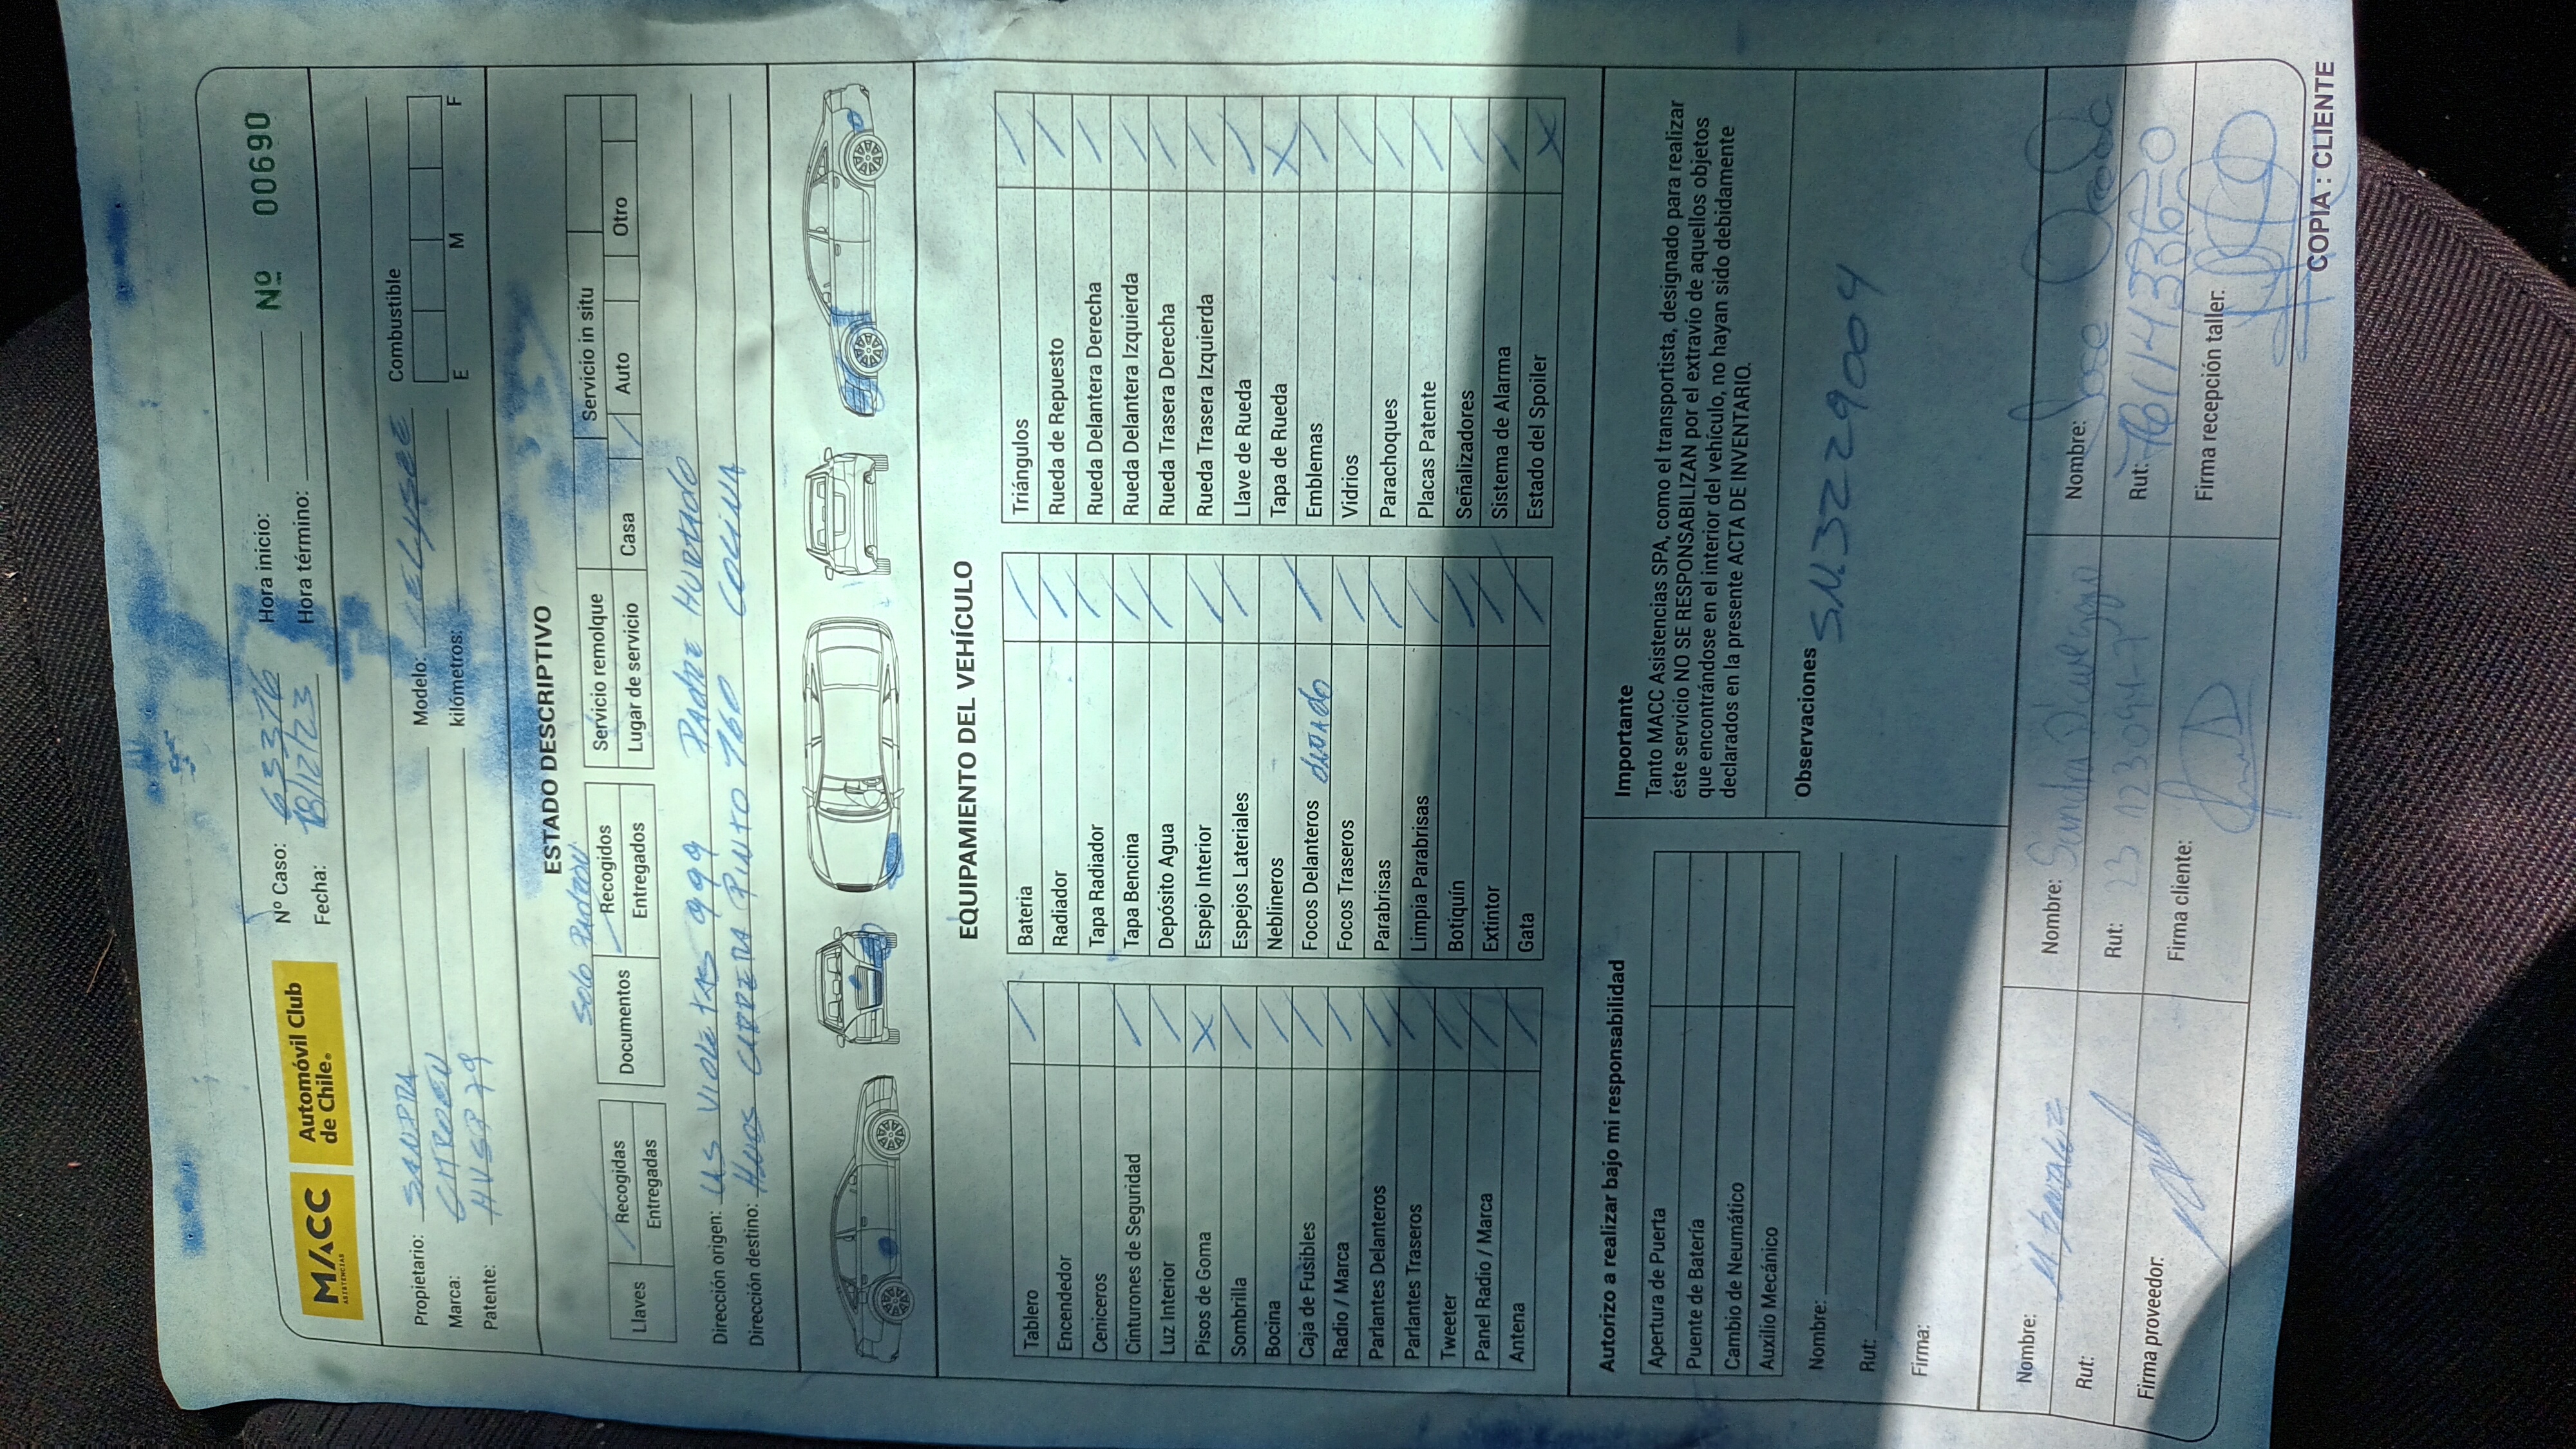 MACC
ASISTENCIAS
Automóvil Club
de Chile®
Nº Caso: 633376 Hora inicio: Nº 00690
Fecha: 18/12/23 Hora término:
Propietario: SANDRA Modelo: CELYSEE Combustible
Marca: CITROEN kilómetros: E M F
Patente: HVSP 79
ESTADO DESCRIPTIVO
Solo Padron
Llaves Recogidas / Documentos / Recogidos Servicio remolque Servicio in situ
Entregadas Entregados Lugar de servicio Casa / Auto Otro
Dirección origen: LAS VIOLETAS 999 PADRE HURTADO
Dirección destino: HNOS CARRERA PINTO 760 COLINA
EQUIPAMIENTO DEL VEHÍCULO
Tablero / Batería / Triángulos /
Encendedor Radiador / Rueda de Repuesto /
Ceniceros Tapa Radiador / Rueda Delantera Derecha /
Cinturones de Seguridad / Tapa Bencina / Rueda Delantera Izquierda /
Luz Interior / Depósito Agua / Rueda Trasera Derecha /
Pisos de Goma X Espejo Interior / Rueda Trasera Izquierda /
Sombrilla / Espejos Laterales / Llave de Rueda /
Bocina / Neblineros Tapa de Rueda X
Caja de Fusibles / Focos Delanteros / Emblemas /
Radio / Marca / Focos Traseros / Vidrios /
Parlantes Delanteros / Parabrisas / Parachoques /
Parlantes Traseros / Limpia Parabrisas / Placas Patente /
Tweeter / Botiquín / Señalizadores /
Panel Radio / Marca / Extintor / Sistema de Alarma /
Antena / Gata / Estado del Spoiler X
Autorizo a realizar bajo mi responsabilidad
Apertura de Puerta
Puente de Batería
Cambio de Neumático
Auxilio Mecánico
Nombre:
Rut:
Firma:
Importante
Tanto MACC Asistencias SPA, como el transportista, designado para realizar
éste servicio NO SE RESPONSABILIZAN por el extravío de aquellos objetos
que encontrándose en el interior del vehículo, no hayan sido debidamente
declarados en la presente ACTA DE INVENTARIO.
Observaciones SN.3229004
Nombre: M. Nombre: Sandra Nombre: Jose
Rut: Rut: 23 Rut: 76114336-0
Firma proveedor: Firma cliente: Firma recepción taller:
COPIA : CLIENTE